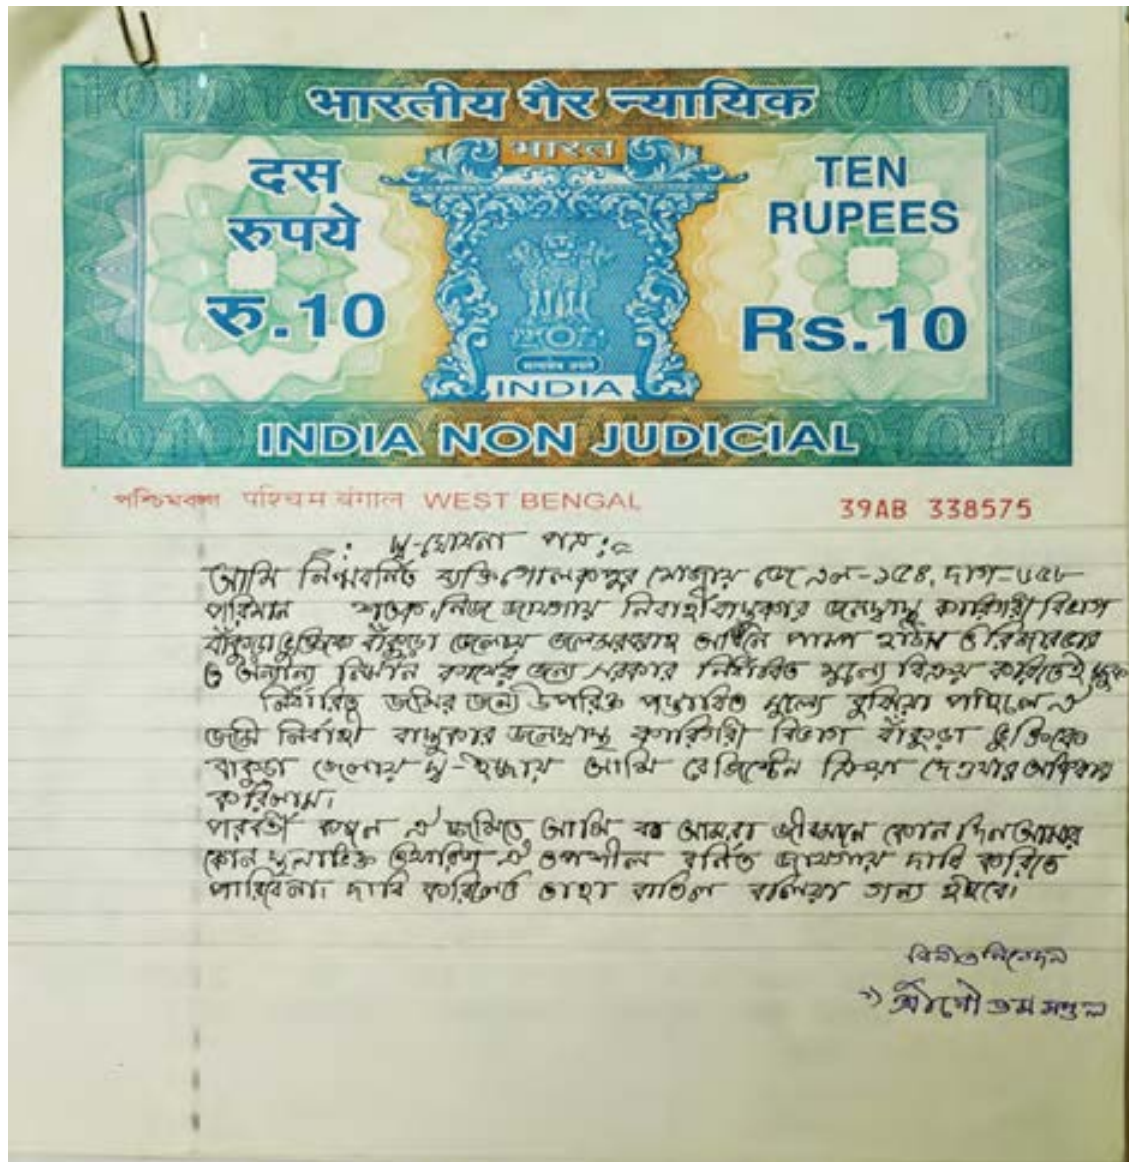 भारतीय गैर न्यायिक
भारत
दस
रुपये
रु.10
TEN
RUPEES
Rs.10
सत्यमेव जयते
INDIA
INDIA NON JUDICIAL
পশ্চিমবঙ্গ पश्चिम बंगाल WEST BENGAL
39AB 338575
স্ব-ঘোষনা পত্র
আমি নিম্নবর্নিত ব্যক্তি গোলকপুর মৌজায় জে এল-১৫৪, দাগ-
পরিমান শতক নিজ জায়গায় নির্বাহী বাস্তুকার জনস্বাস্থ্য কারিগরী বিভাগ
বাঁকুড়া ভুক্তিকে বাঁকুড়া জেলায় জলসরবরাহ পাম্প হাউস ও রিজারভার
ও অন্যান্য নির্মান কার্যের জন্য সরকার নির্ধারিত মূল্যে বিক্রয় করিতে ইচ্ছুক
নির্ধারিত জমির জন্য উপরিক্ত মূল্যে বুঝিয়া পাইলে ঐ
জমি নির্বাহী বাস্তুকার জনস্বাস্থ্য কারিগরী বিভাগ বাঁকুড়া ভুক্তিকে
বাকুড়া জেলায় স্ব-ইচ্ছায় আমি দেওয়ার
করিলাম।
পরবর্তী কালে ঐ জমিতে আমি বা আমরা জীবনে কোন দিন আমার
কোন ঐ তপশীল বর্নিত জায়গায় দাবি করিতে
পারিবেনা। দাবি করিলেও তাহা বাতিল বলিয়া গন্য হইবে।
বিনীত নিবেদন
শ্রী গৌতম মণ্ডল